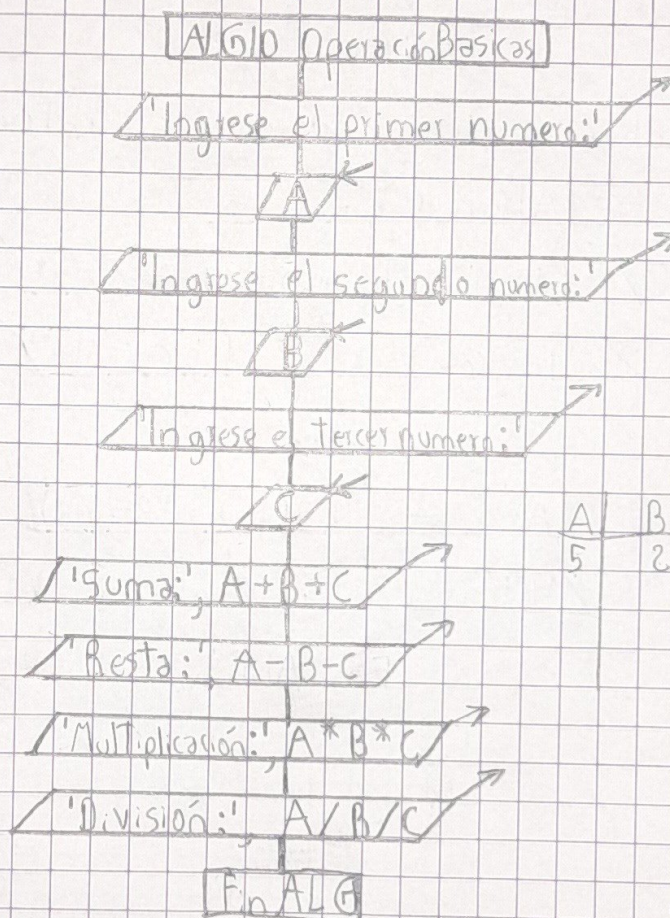 ALG10 OperaciónBasicas
'Ingrese el primer numero:'
A
'Ingrese el segundo numero:'
B
'Ingrese el tercer numero:'
C
A B
5 2
'Suma:', A+B+C
'Resta:', A-B-C
'Multiplicación:', A*B*C
'División:', A/B/C
Fin ALG